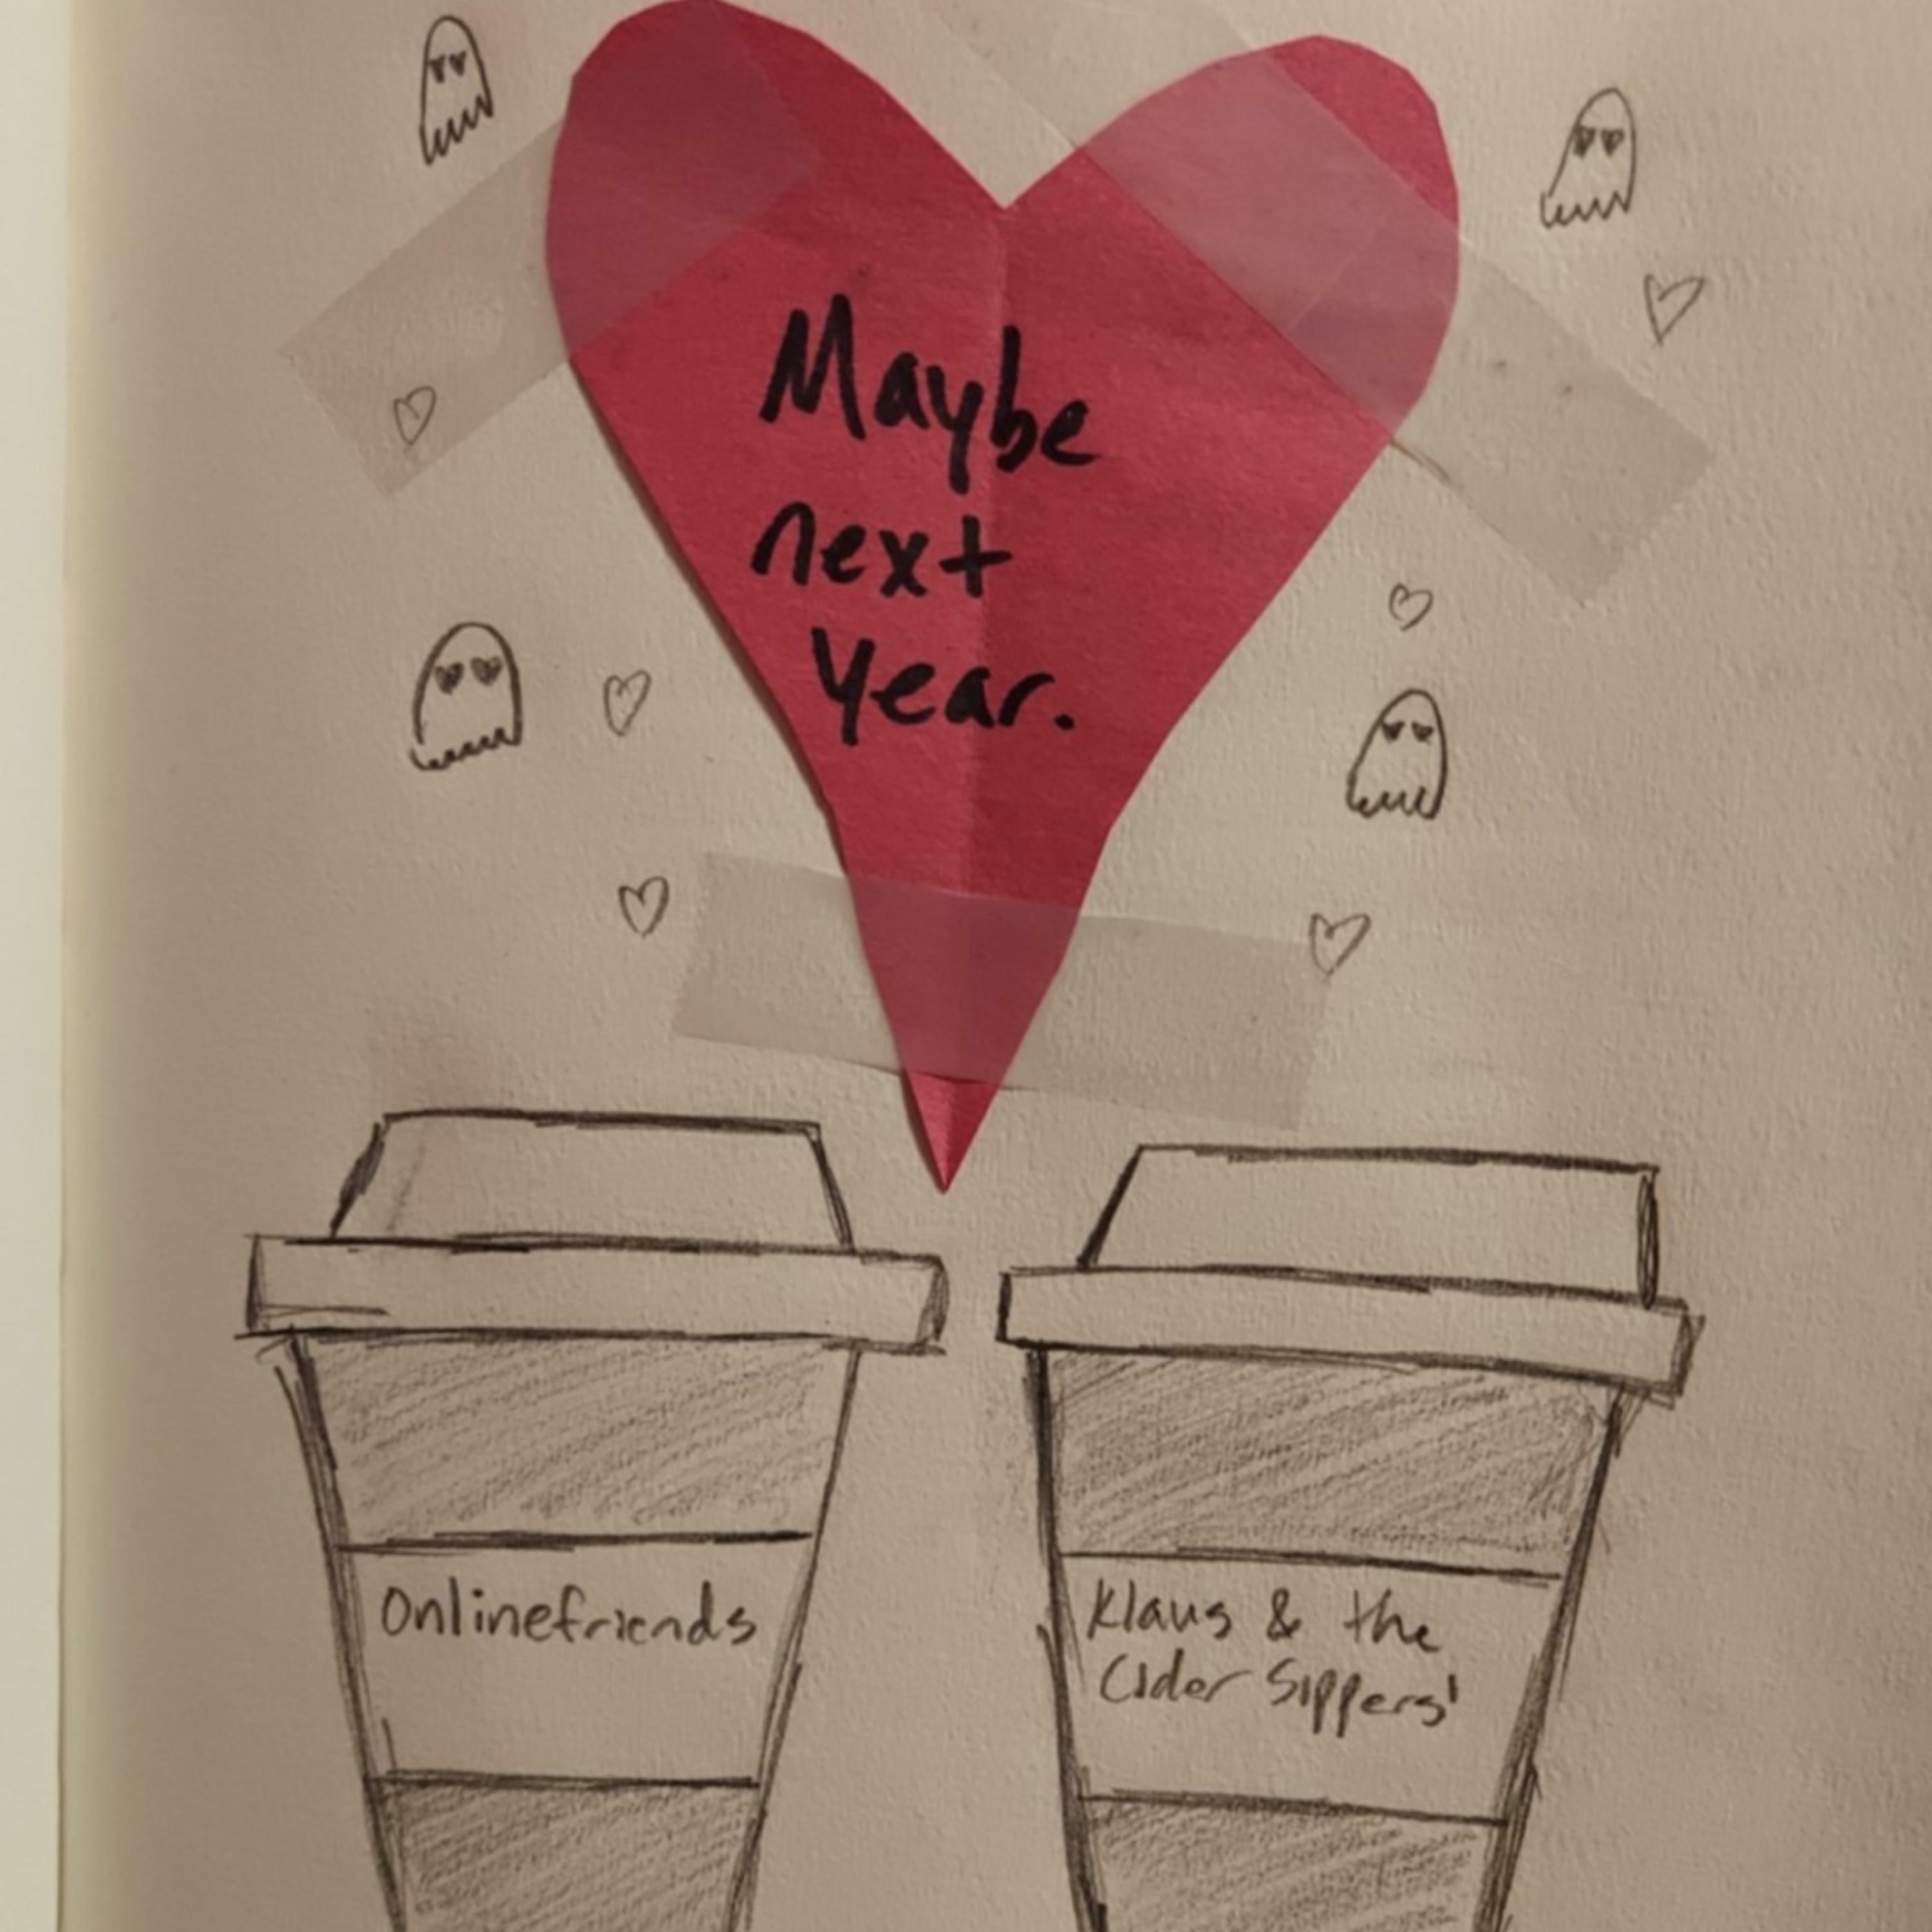 Maybe
next
Year.
Onlinefriends
Klaus & the
Cider Sippers'